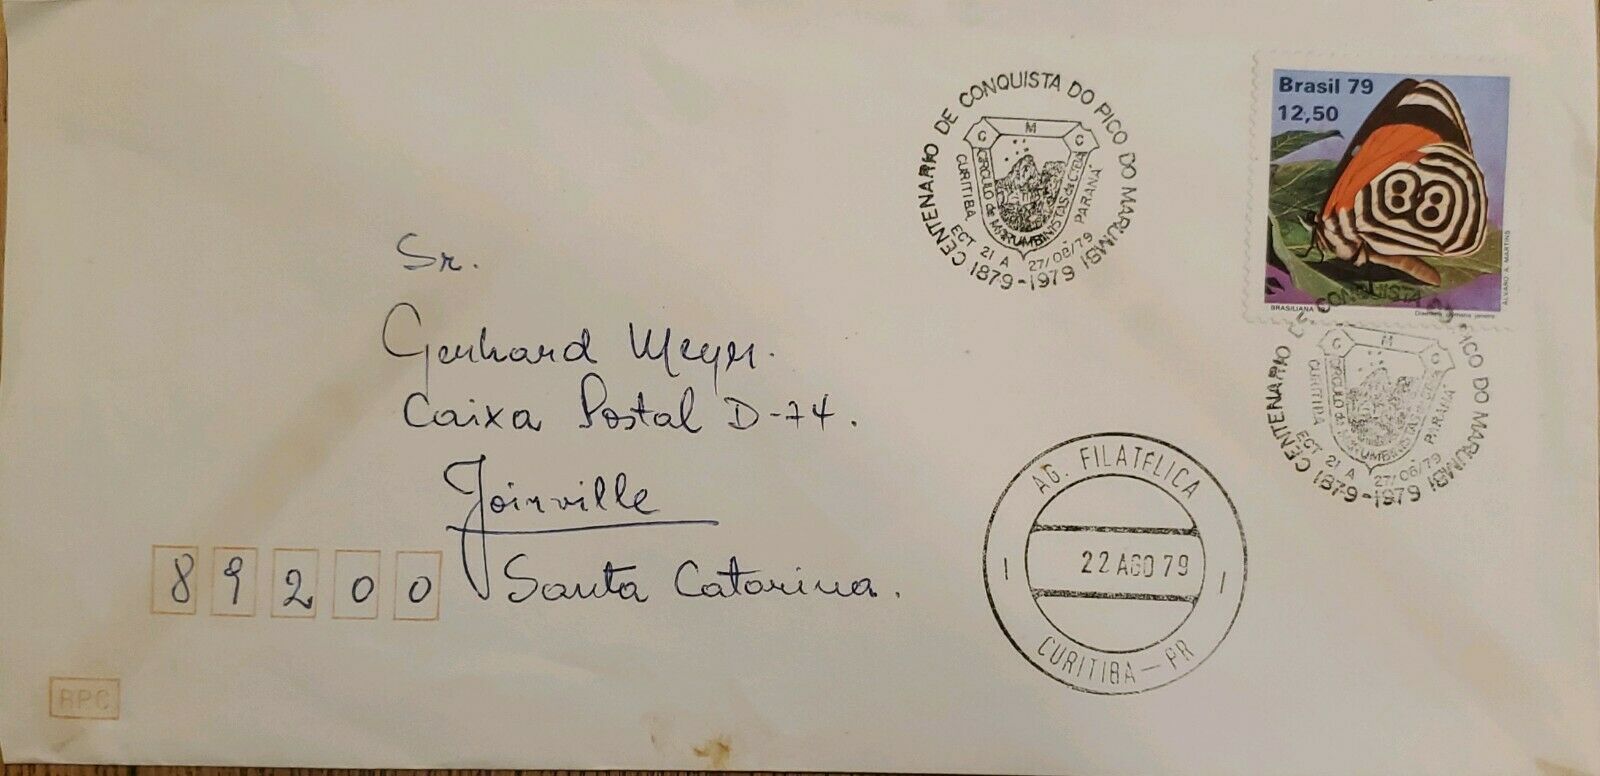 CENTENARIO DE CONQUISTA DO PICO DO MARUMBI
C M C
CIRCULO de MARUMBINISTAS de CTBA
CURITIBA PARANÁ
ECT 21 A 27/08/79
1879-1979
Brasil 79
12,50
88
BRASILIANA
ALVARO A. MARTINS
CENTENARIO DE CONQUISTA DO PICO DO MARUMBI
C M C
CIRCULO de MARUMBINISTAS
CURITIBA PARANÁ
ECT 21 A 27/08/79
1879-1979
Sr.
Gerhard Meyer.
Caixa Postal D-74.
Joinville
89200 Santa Catarina.
AG. FILATÉLICA
I 22 AGO 79 I
CURITIBA — PR
RPC